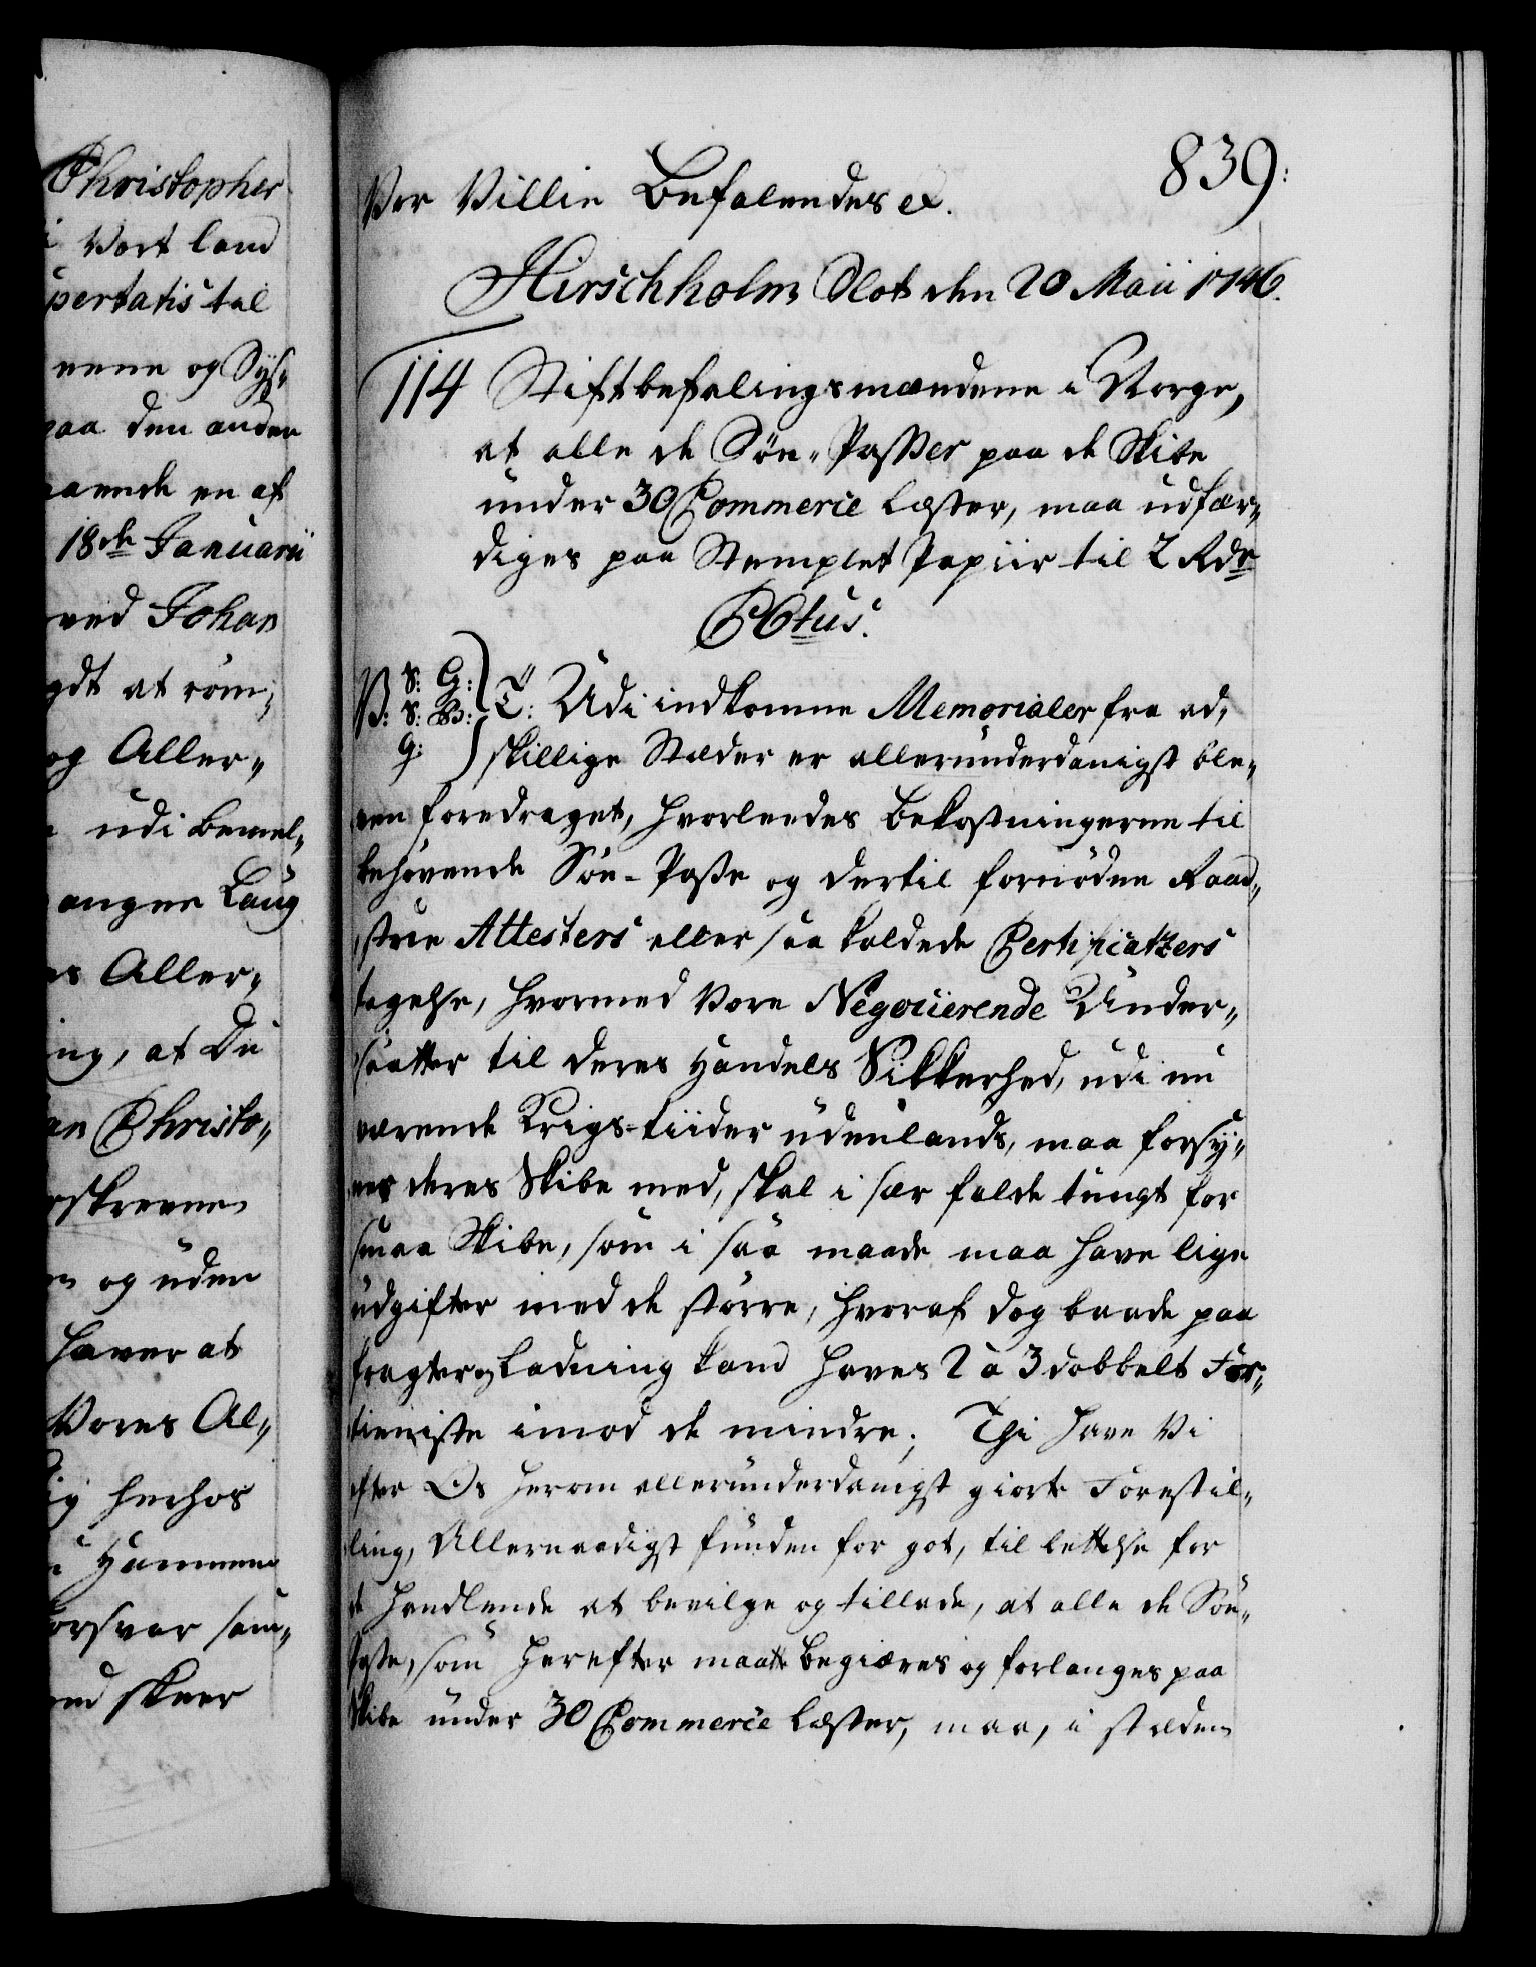 Christopher
Vort land
pertatis tal
nene og Sys„
paa den anden
aaende en af
18de Januarii
ved Johan
gdt at röm„
og Aller„
udi bemel„
anger Laug
es Aller„
ing, at Du
an Christo„
rskrevne
og uden
haver at
Vores Al„
herhos
Hammene
orsvar sam„
skeer
839:
Vor Villie Befalendes etc.
Hirschholm Slot den 20 Maii 1746.
114 Stiftbefalingsmændene i Norge,
at alle de Söe-Passer paa de Skibe
under 30 Commercie Læster, maa udfær„
diges paa Stemplet Papiir til 2 Rdr
CCtus.
V: S: G: S: B: G: } T: Udi indkomne Memorialer fra ad„
skillige Stæder er allerunderdanigst ble„
ven foredraget, hvorledes bekostningerne til
behövende Söe-Passe og dertil fornödne Raad„
stue Attesters eller saa kaldede Certificatzers
tagelse, hvormed Vore Negociierende Under„
saatter til deres Handels Sikkerhed, udi nu
værende Krigs-tiider udenlands, maa forsy„
nes deres Skibe med, skal i sær falde tungt for
smaa Skibe, som i saa maade maa have lige
udgifter med de större, hvoraf dog baade paa
fragter og Ladning kand haves 2 à 3 dobbelt For„
tieniste imod de mindre; Thi have Vi
efter Os herom allerunderdanigst giorte Forestil„
ling, Allernaadigst funden for got, til lettelse for
de Handlende at bevilge og tillade, at alle de Söe„
Passe, som herefter maatte begiæres og forlanges paa
Skibe under 30 Commercie Læster, maa, i stæden